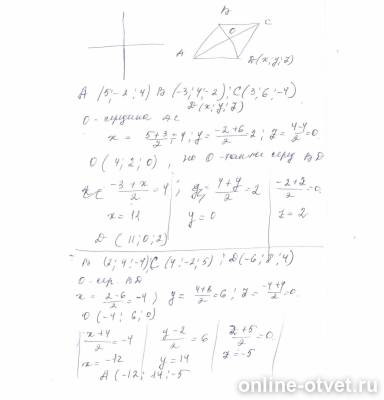 B
C
O
A
D(x;y;z)
A (5;-2;4) B (-3;4;-2); C(3;6;-4)
D(x;y;z)
O - середина AC
x = \frac{5+3}{2} = 4; y = \frac{-2+6}{2} = 2; z = \frac{4-4}{2} = 0
O (4; 2; 0), но O - так же серед BD
\frac{-3+x}{2} = 4; \frac{4+y}{2} = 2 \frac{-2+z}{2} = 0
x = 11 y = 0 z = 2
D (11; 0; 2)
B (2; 4; -4), C (4; -2; 5); D(-6; 8; 4)
O - сер. BD
x = \frac{2-6}{2} = -4; y = \frac{4+8}{2} = 6; z = \frac{-4+4}{2} = 0.
O (-4; 6; 0)
\frac{x+4}{2} = -4 \frac{y-2}{2} = 6 \frac{z+5}{2} = 0.
x = -12 y = 14 z = -5
A (-12; 14; -5
online-otvet.ru